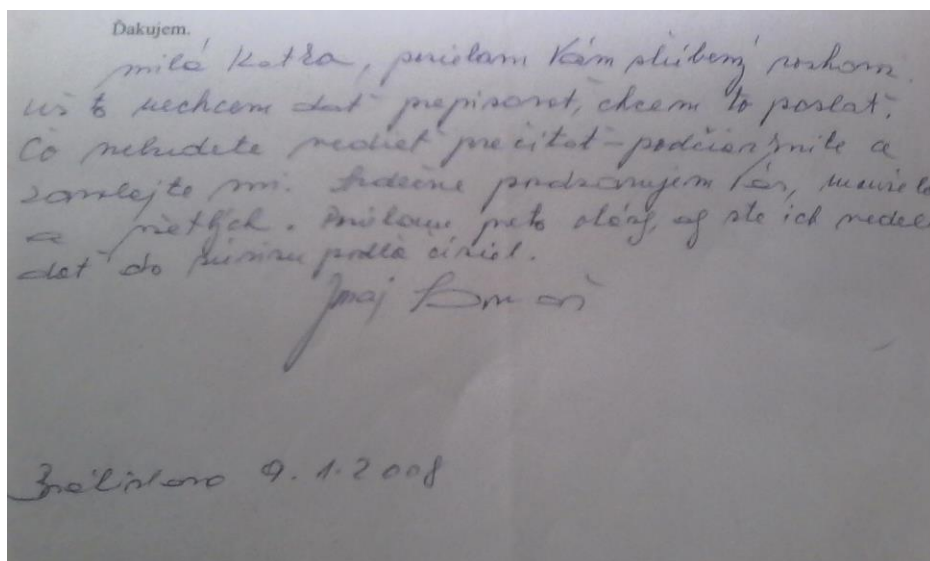 Ďakujem.
milá Katka, posielam Vám slúbený rozhovor.
už to nechcem dať prepisovať, chcem to poslať.
Čo nebudete vedieť prečítať - podčiarknite a
zavolajte mi. Srdečne pozdravujem Vás, manžela
a všetkých. otázky, aj ste ich vedeli
dať do súvisu podľa čísiel.
Juraj
Bratislava 9.1.2008